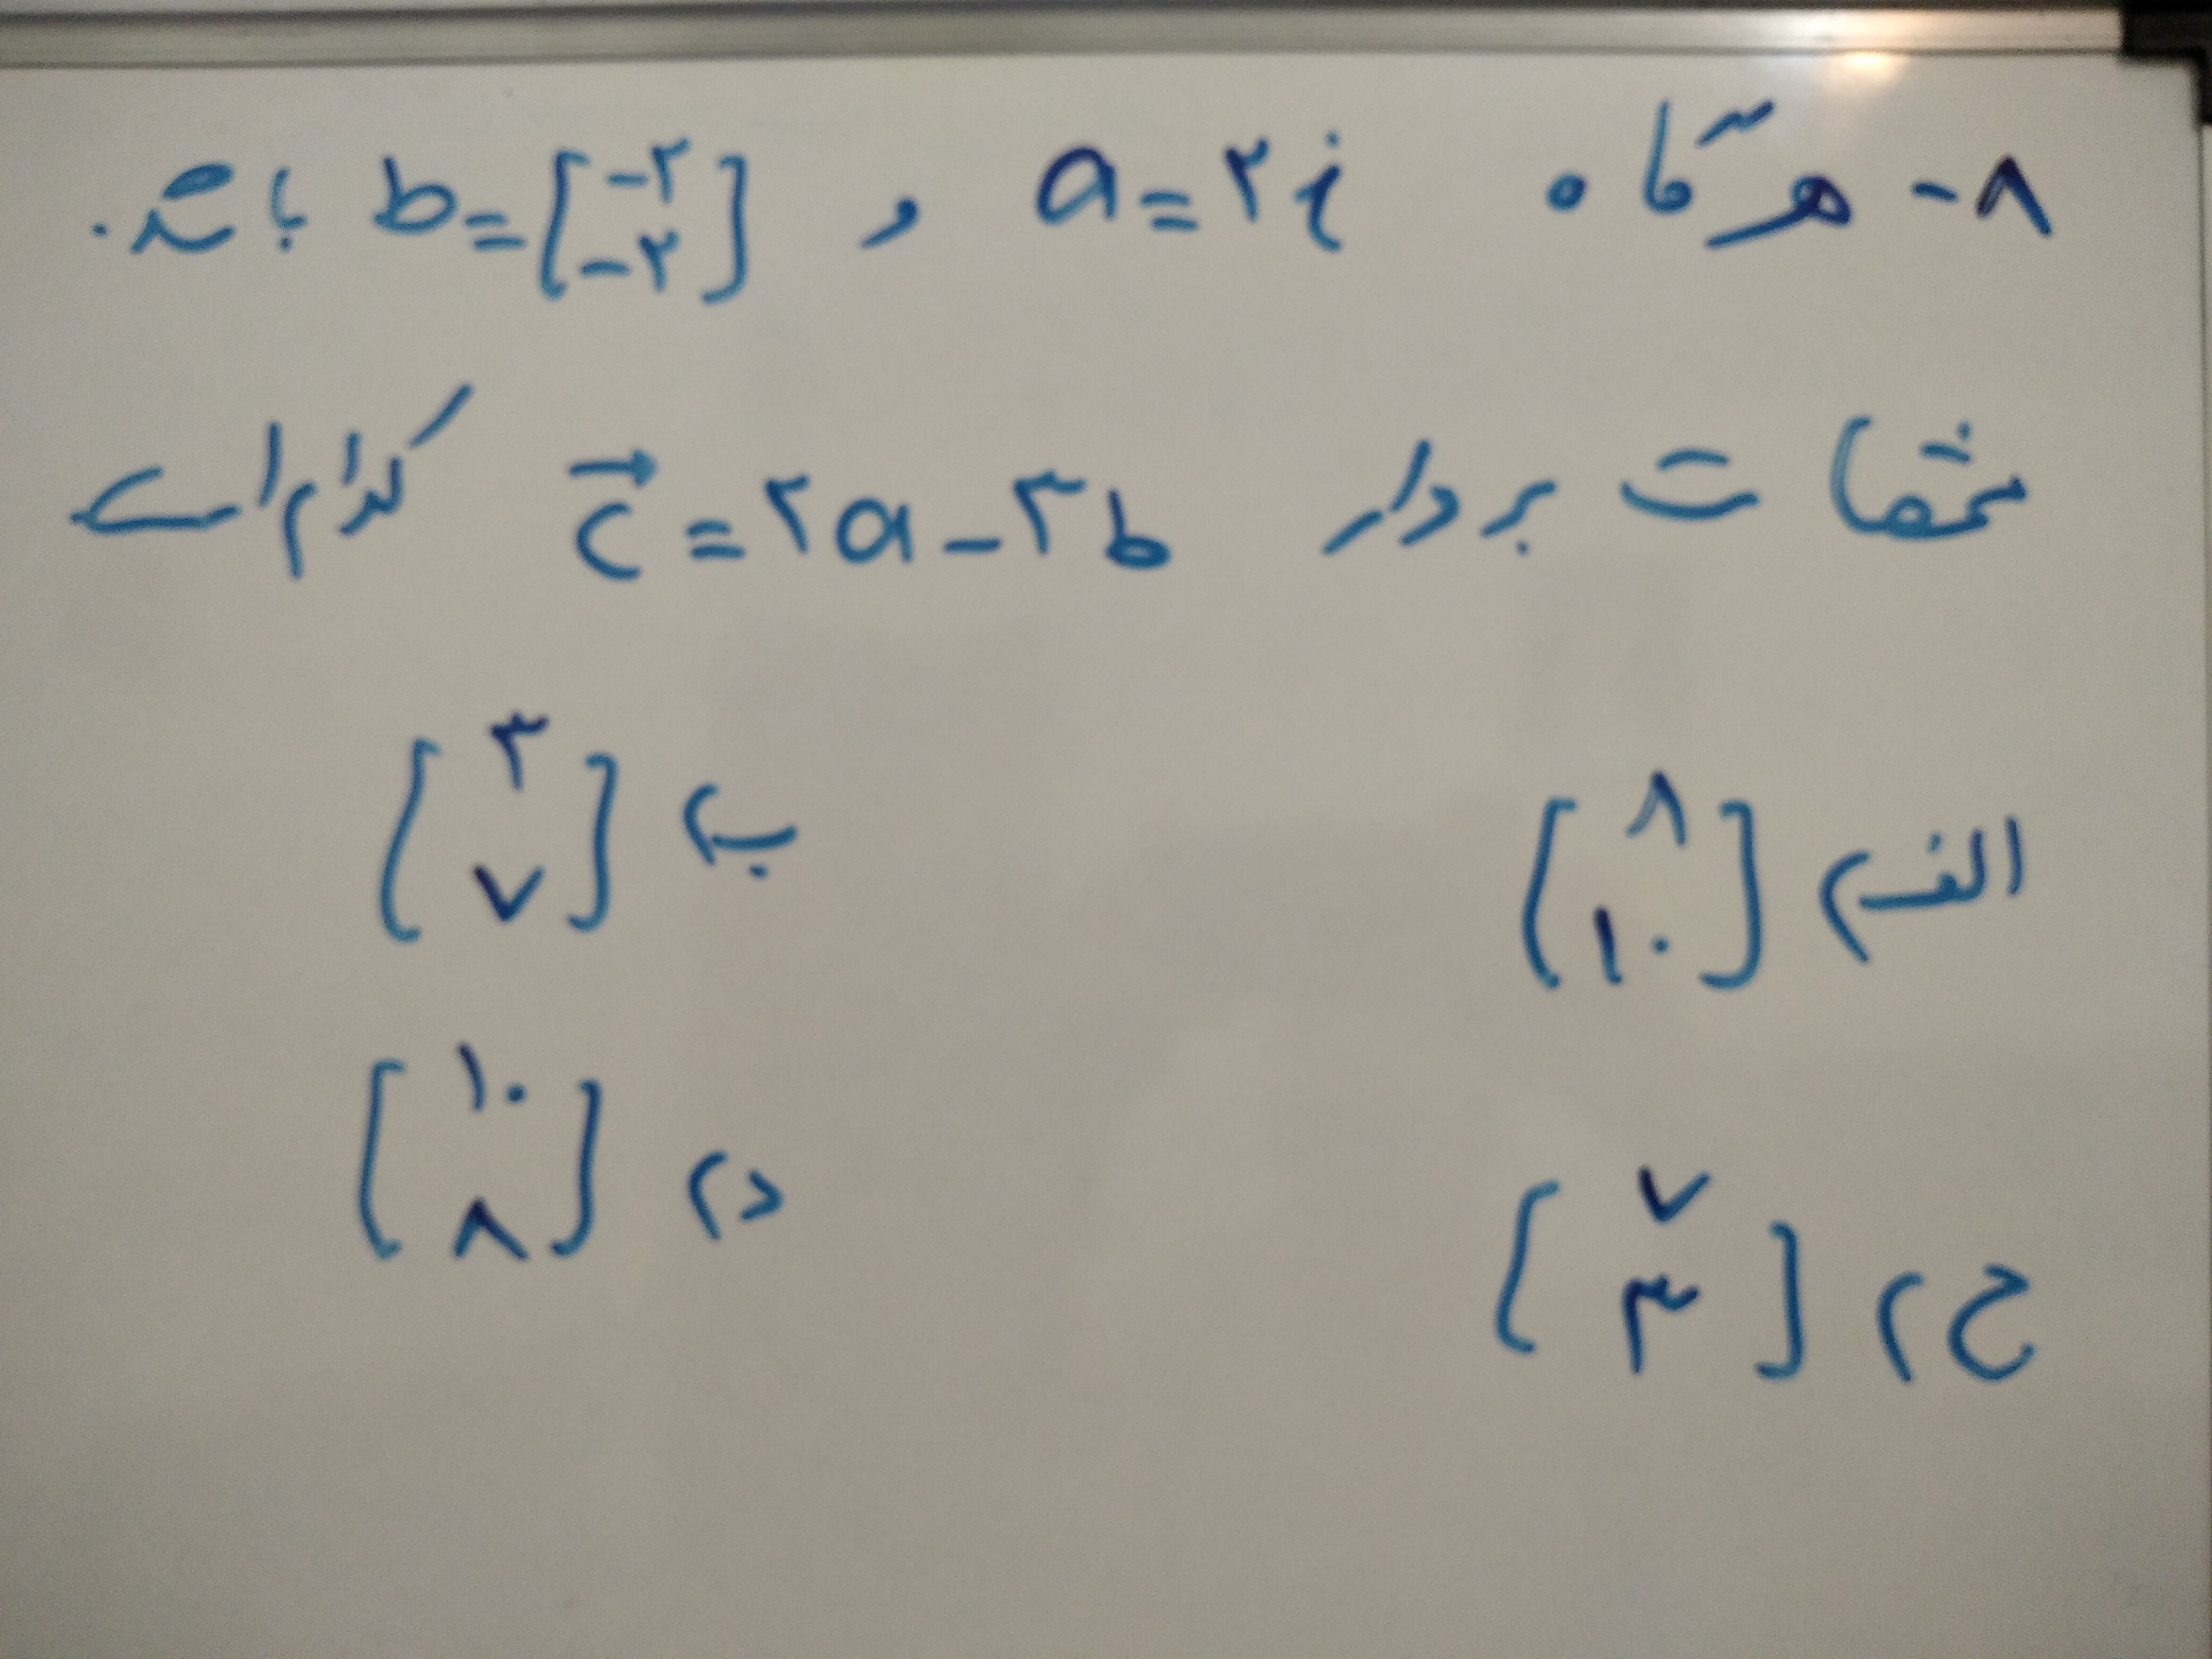 ۸- هرگاه a = ۲i و b = [-۲ -۲] باشد.
مختصات بردار c⃗ = ۲a - ۳b کدام است
الف) [۸ ۱۰] ب) [۳ ۷]
ج) [۷ ۳] د) [۱۰ ۸]